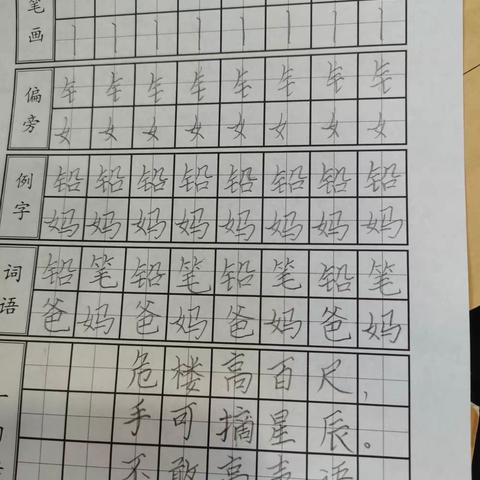 笔画 丨 丨 丨 丨 丨 丨 丨 丨
偏旁 钅 钅 钅 钅 钅 钅 钅 钅
女 女 女 女 女 女 女 女
例字 铅 铅 铅 铅 铅 铅 铅 铅
妈 妈 妈 妈 妈 妈 妈 妈
词语 铅 笔 铅 笔 铅 笔 铅 笔
爸 妈 爸 妈 爸 妈 爸 妈
危楼高百尺，
手可摘星辰。
不敢高声语